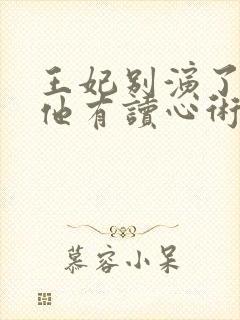 王妃別演了
他有讀心術
慕容小呆